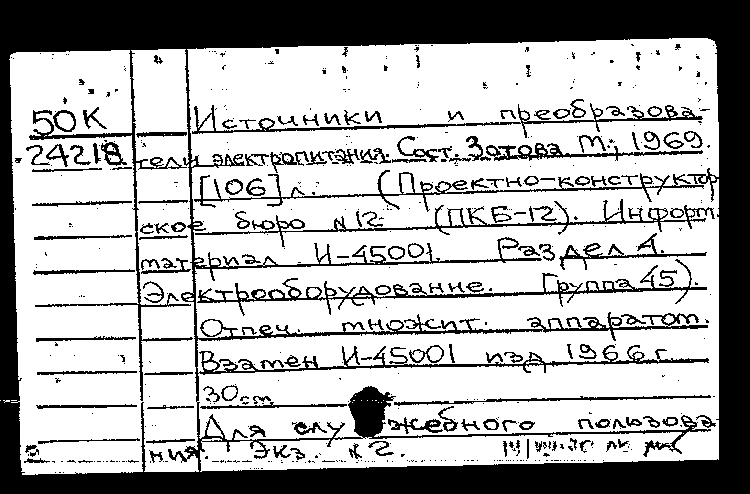 50К Источники и преобразова-
24218 тели электропитания. Сост. Зотова М., 1969.
[106] л. (Проектно-конструктор
ское бюро №12 (ПКБ-12). Информ.
материал И-45001. Раздел 4.
Электрооборудование. Группа 45).
Отпеч. множит. аппаратом.
Взамен И-45001 изд. 1966 г.
30 cm
Для служебного пользова
ния. Экз. № 2.